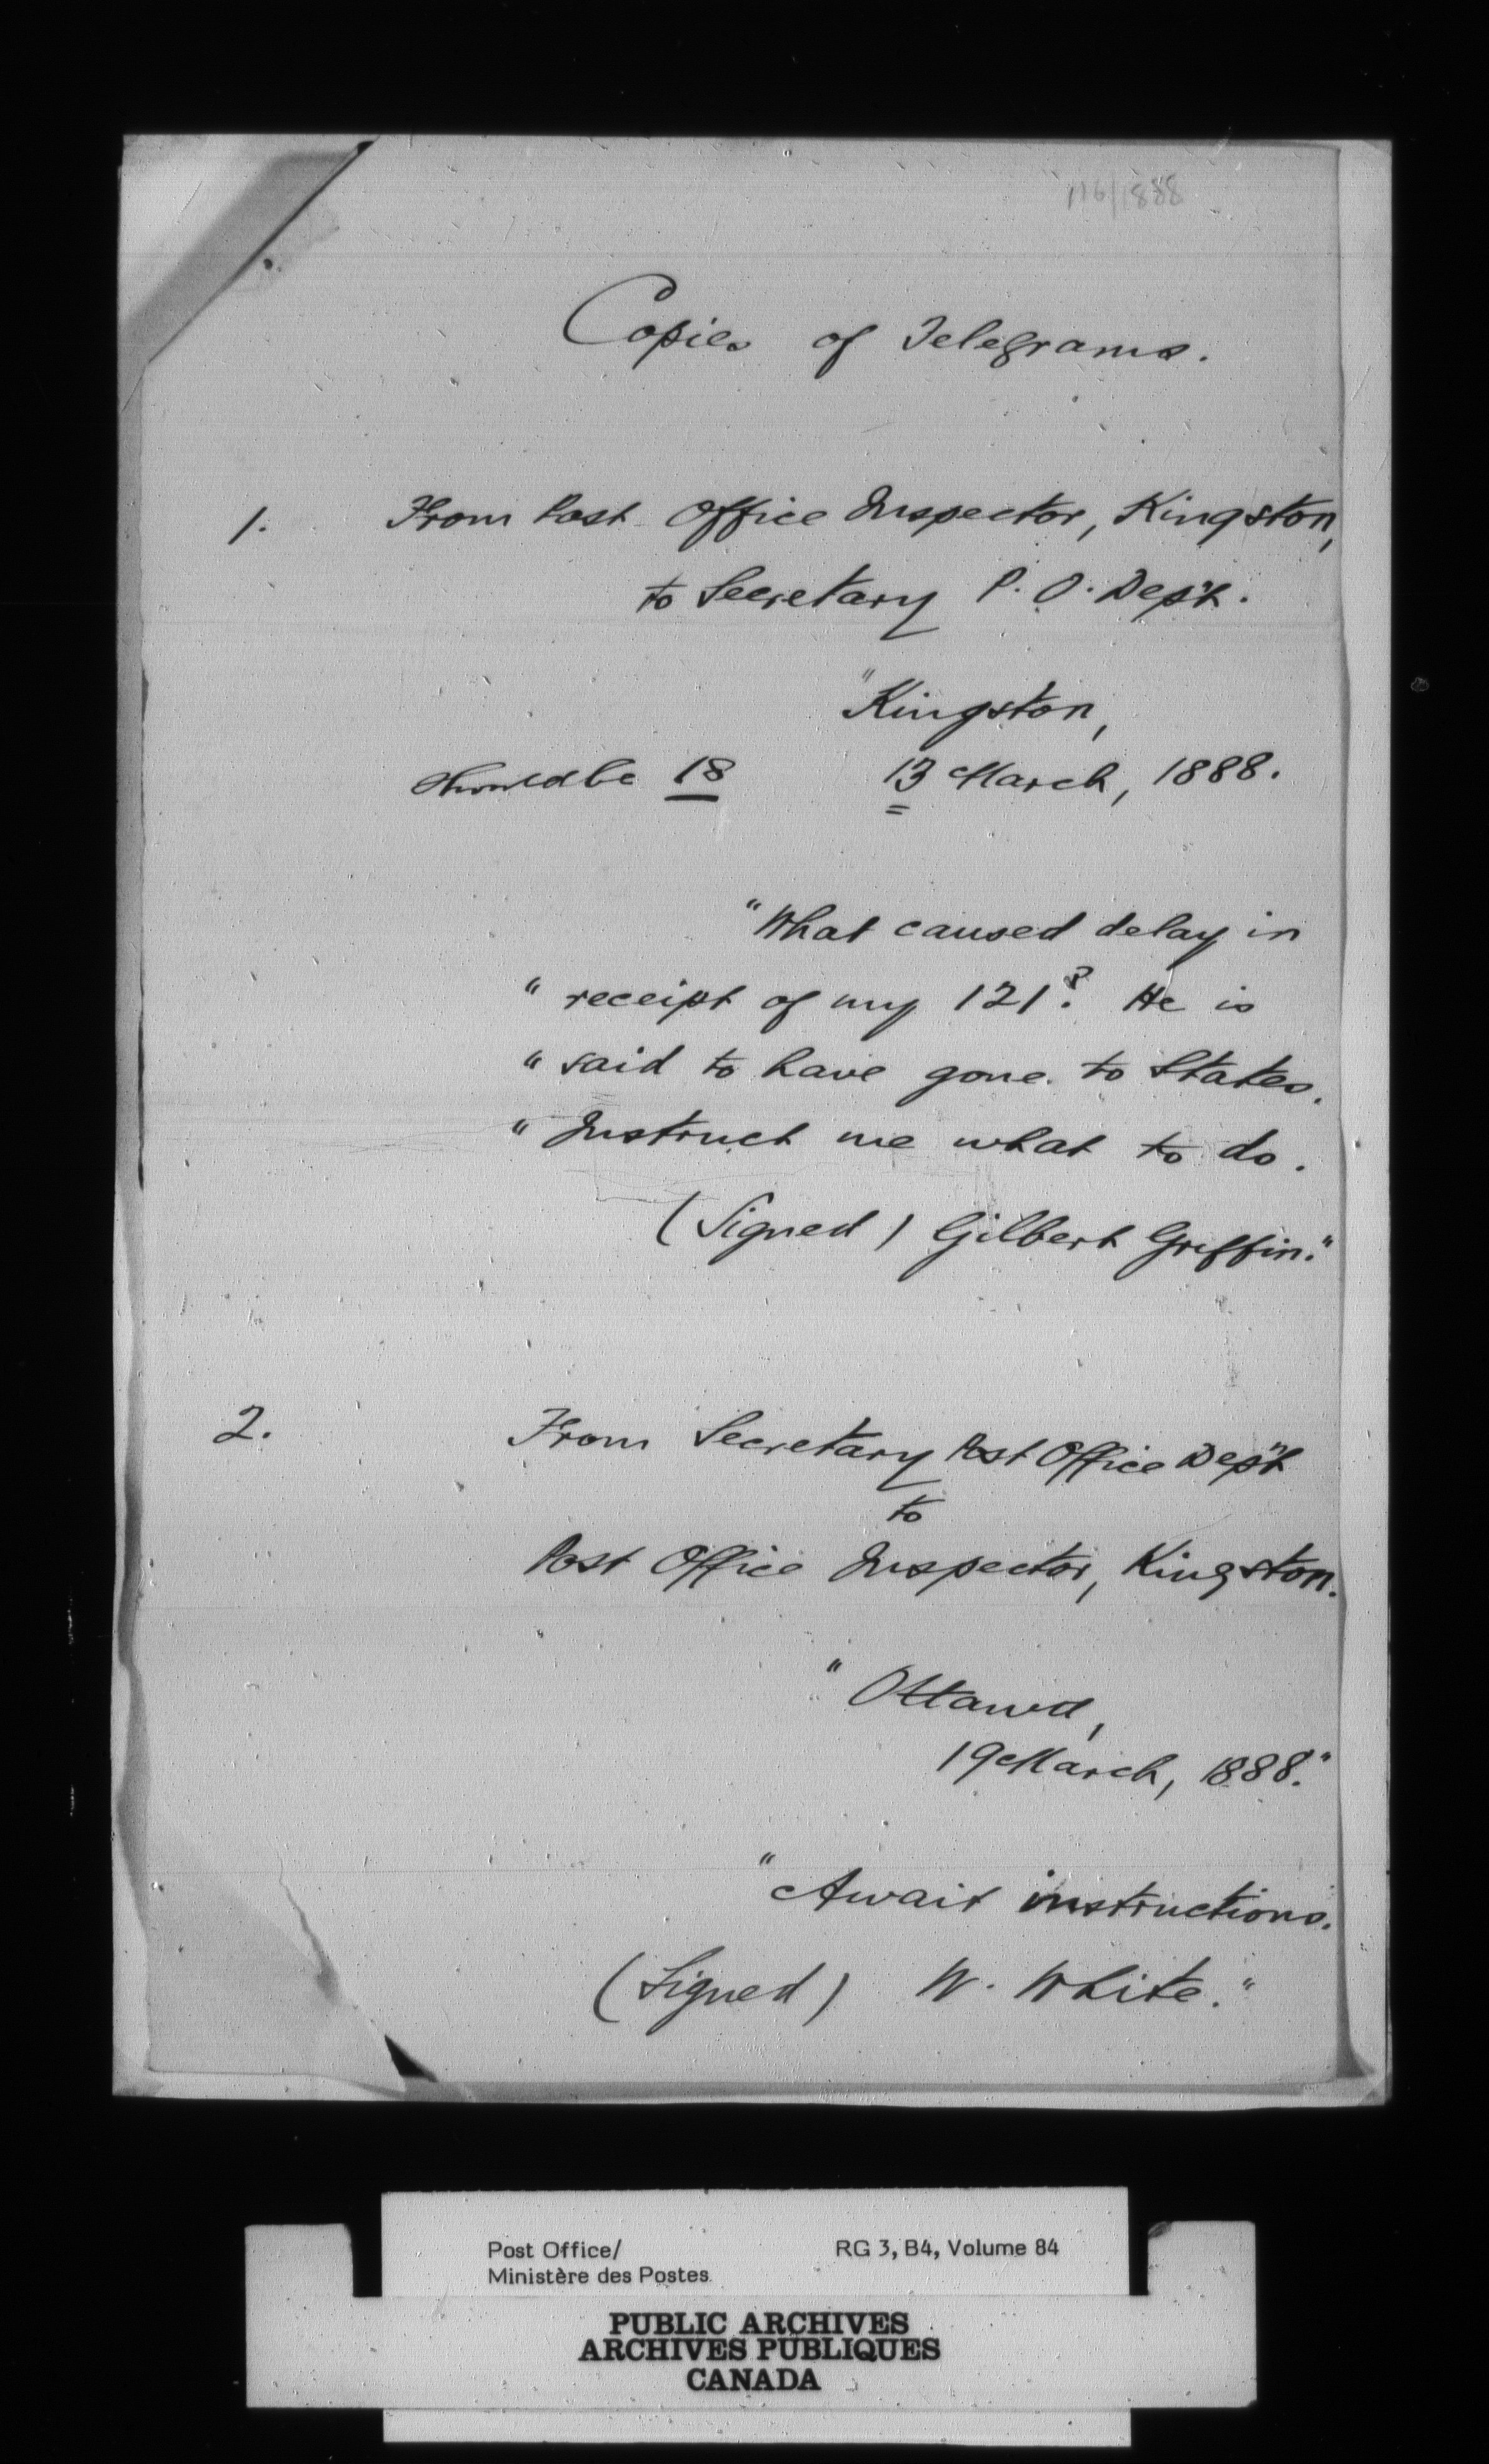 116/1888
Copies of Telegrams.
1. From Post Office Inspector, Kingston,
to Secretary P. O. Dep't.
"Kingston,
should be 18 13 March, 1888.
"What caused delay in
" receipt of my 121? He is
" said to have gone to States.
" Instruct me what to do.
(Signed) Gilbert Griffin."
2. From Secretary Post Office Dep't
to
Post Office Inspector, Kingston.
" Ottawa,
19 March, 1888."
"Await instructions.
(Signed) W. White."
Post Office/ RG 3, B4, Volume 84
Ministère des Postes
PUBLIC ARCHIVES
ARCHIVES PUBLIQUES
CANADA